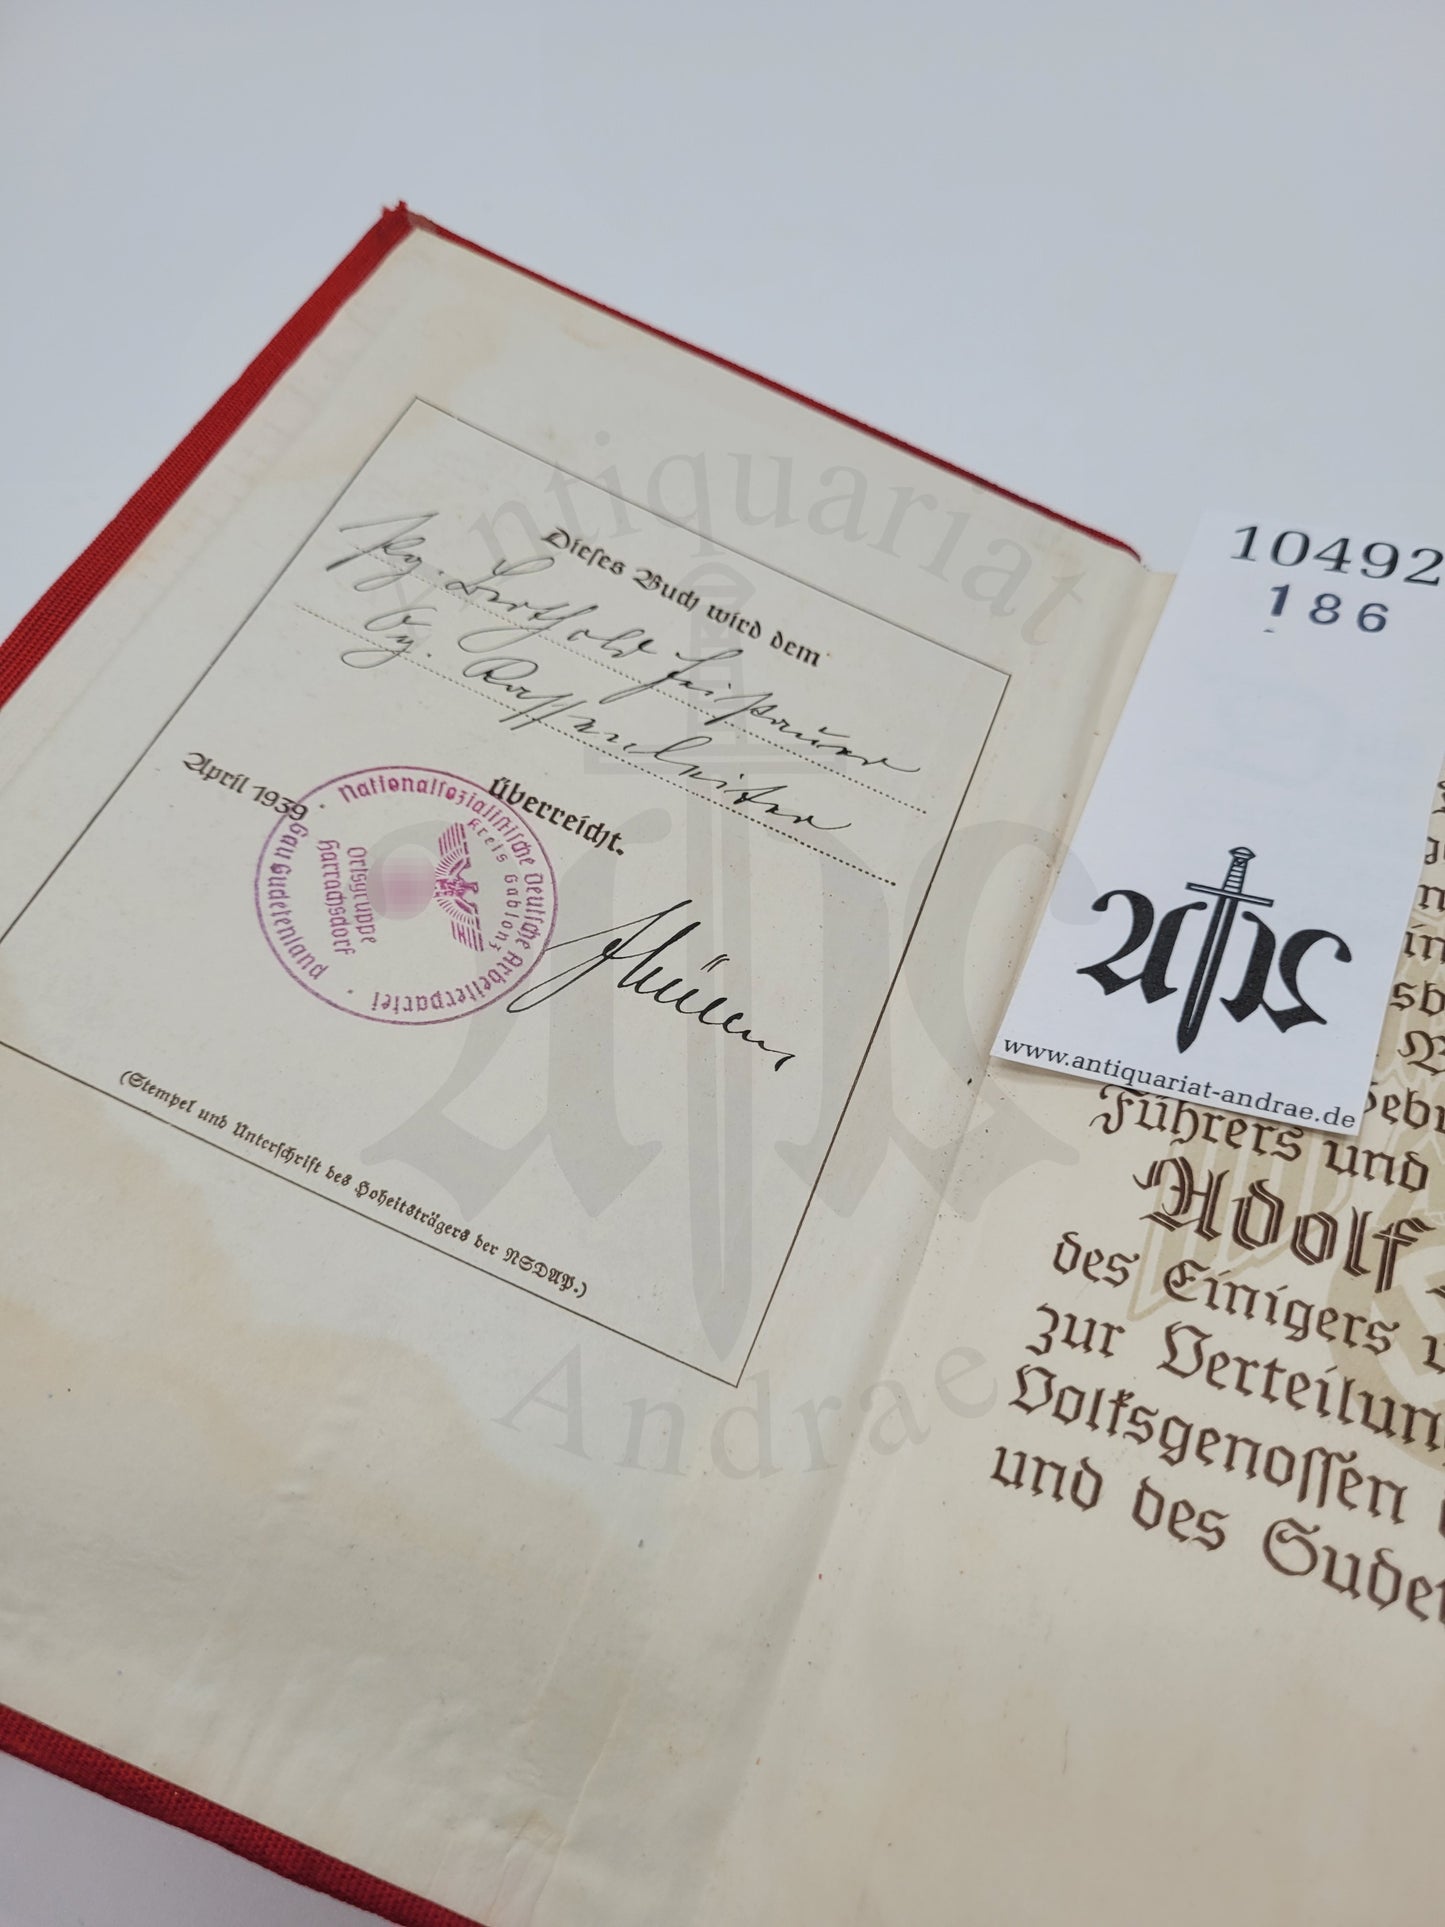 Dieses Buch wird dem
Pg. Berthold
Og. Kassenleiter
überreicht.
April 1939
Nationalsozialistische Deutsche Arbeiterpartei
Gau Sudetenland
Kreis Gablonz
Ortsgruppe
Harrachsdorf
(Stempel und Unterschrift des Hoheitsträgers der NSDAP.)
10492
186
www.antiquariat-andrae.de
Führers und
Adolf
des Einigers
zur
Volksgenossen
und des
Antiquariat
Andrae